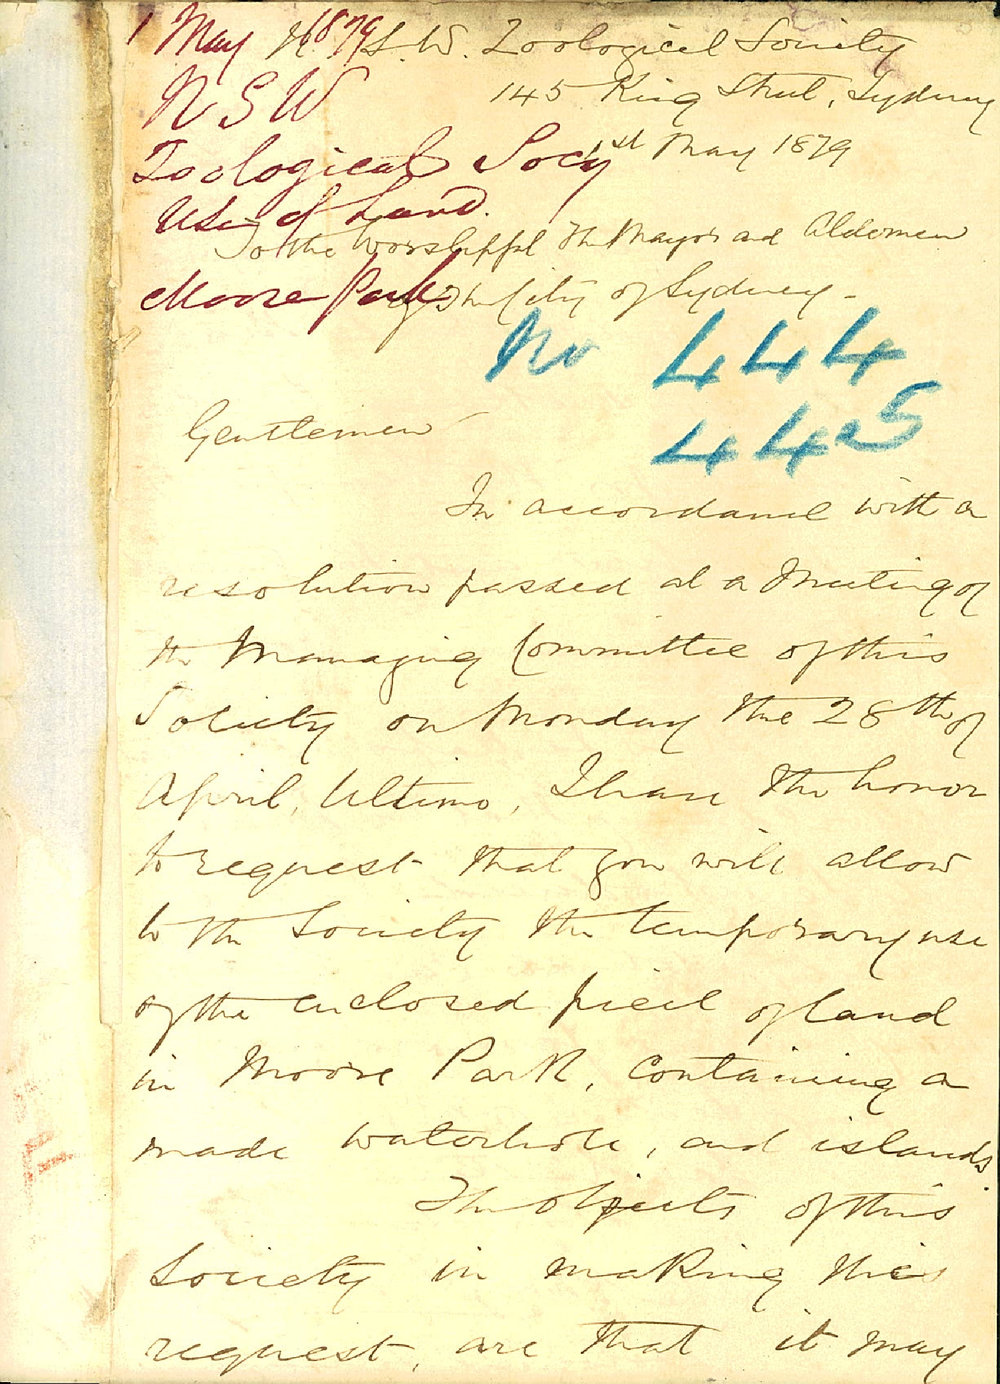 1 May 1879
N S W
Zoological Socy
Use of Land
Moore Park
N.S.W. Zoological Society
145 King Street, Sydney
1st May 1879
To the Worshipful The Mayor and Aldermen
of The City of Sydney -
No 444
445
Gentlemen
In accordance with a
resolution passed at a Meeting of
the Managing Committee of this
Society on Monday the 28th of
April, Ultimo, I have the honor
to request that you will allow
to the Society the temporary use
of the enclosed piece of land
in Moore Park, containing a
made waterhole, and islands.
The objects of this
Society in making this
request, are that it may